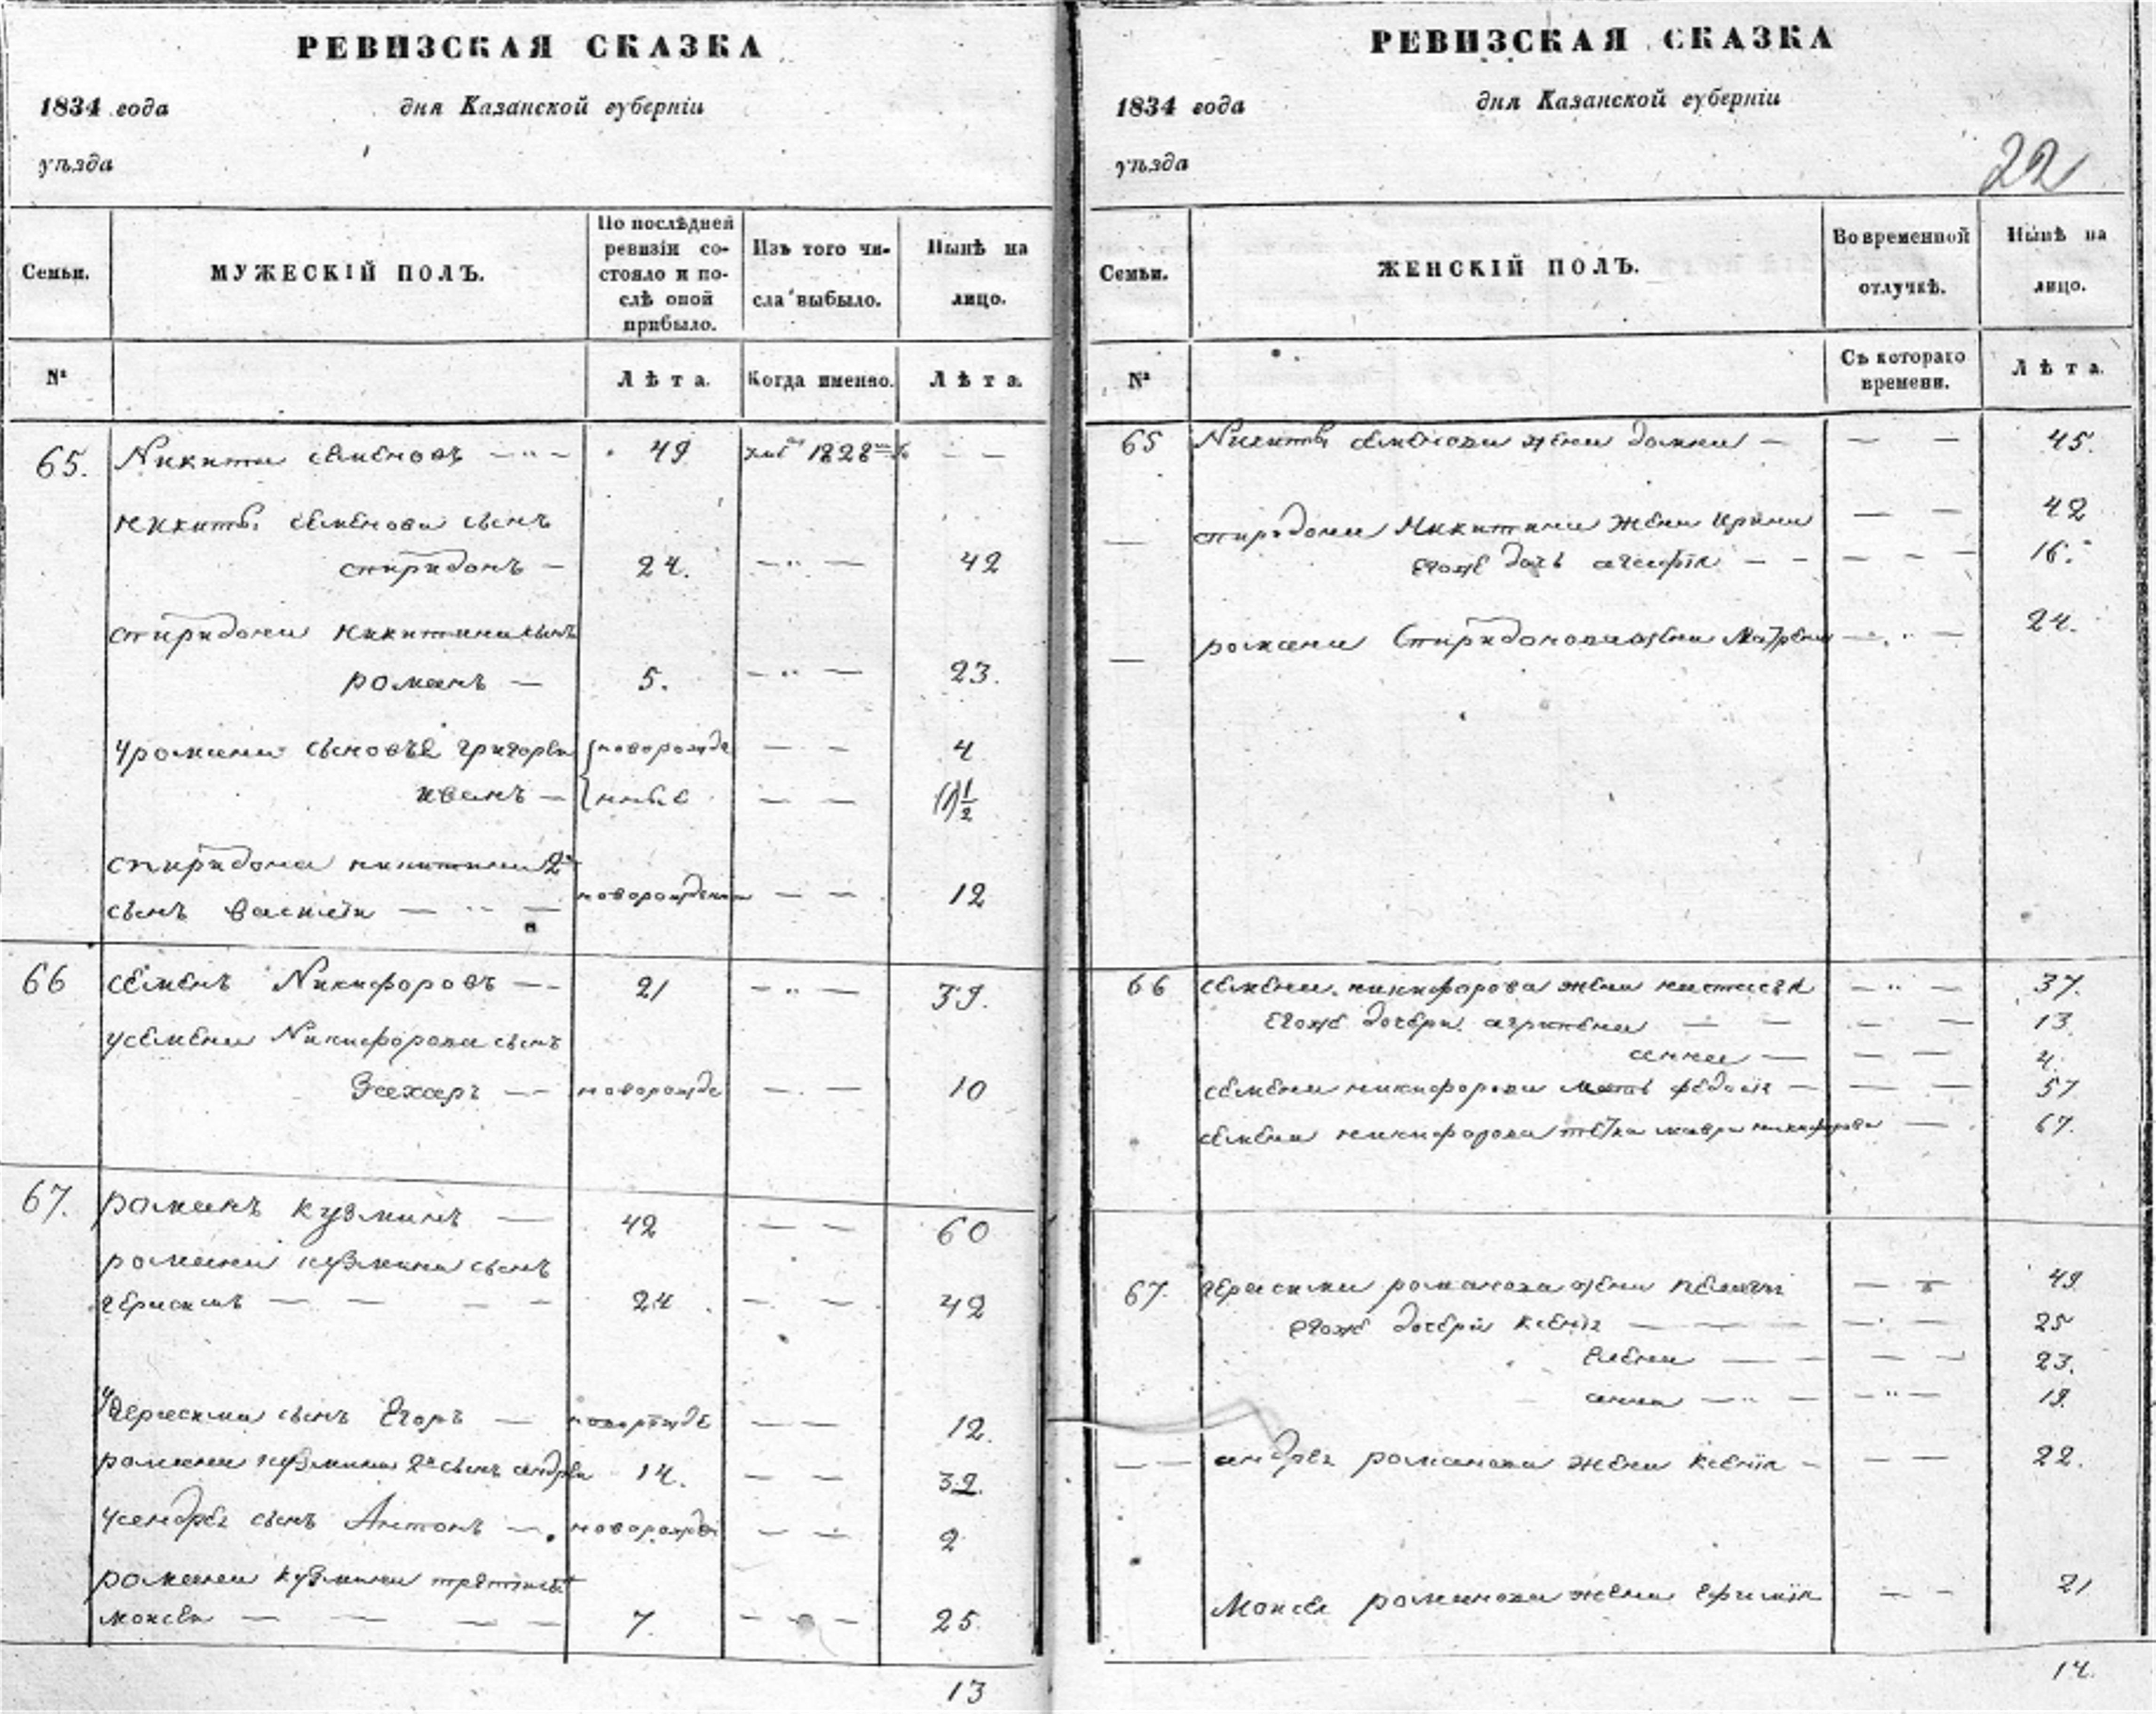 РЕВИЗСКАЯ СКАЗКА
1834 года дня Казанской губерніи
уѣзда
Семьи.
МУЖЕСКІЙ ПОЛЪ.
По послѣдней
ревизіи со-
стояло и по-
слѣ оной
прибыло.
Изъ того чи-
сла выбыло.
Нынѣ на
лицо.
№
Лѣта.
Когда именно.
Лѣта.
65. Никита семеновъ 49 1828
никиты семенова сынъ
спиридонъ 24. 42
спиридона никитина сынъ
романъ 5. 23.
у романа сыновья григореи новорожде 4
иванъ нные 1/2
спиридона никитина 2й
сынъ василеи новорожденны 12
66 семенъ Никифоровъ 21 39.
у семена Никифорова сынъ
Захаръ новорожде 10
67. романъ кузминъ 42 60
романа кузмина сынъ
герасимъ 24 42
у герасима сынъ Егоръ новорожде 12.
романа кузмина 2й сынъ андреи 14. 32.
у андрея сынъ Антонъ новорожде 2
романа кузмина третіи сы
моисеи 7. 25
13
РЕВИЗСКАЯ СКАЗКА
1834 года дня Казанской губерніи
уѣзда
22
Семьи.
ЖЕНСКІЙ ПОЛЪ.
Во временной
отлучкѣ.
Нынѣ на
лицо.
№
Съ котораго
времени.
Лѣта.
65 Никиты семенова жена домна 45.
спиридона Никитина жена ирина 42
егоже дочь агафія 16.
романа Спиридонова жена Матрена 24.
66 семена никифорова жена настасея 37.
егоже дочери агрипена 13.
анна 4.
семена никифорова мать федосія 57
семена никифорова тетка мавра никифорова 67.
67. герасима романова жена пелагеи 49
егоже дочери ксенія 25
елена 23.
анна 19.
андрея романова жена ксенія 22.
Моисея романова жена ефимія 21
14.